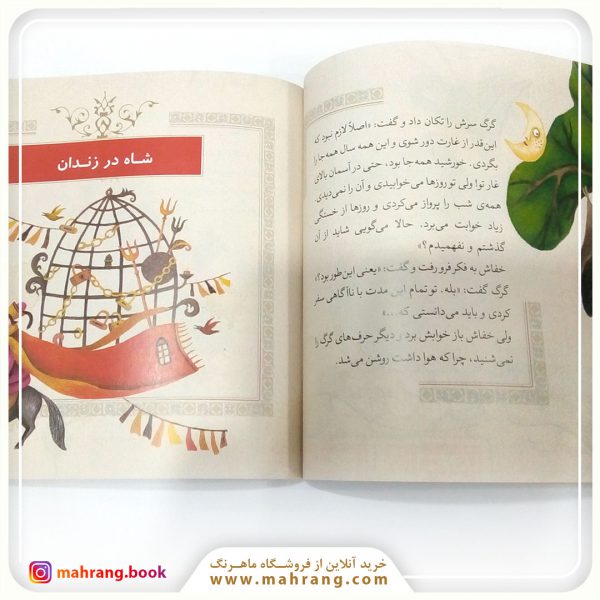 گرگ سرش را تکان داد و گفت: «اصلاً لازم نبود که
این‌قدر از غارت دور شوی و این همه سال همه‌جا را
بگردی. خورشید همه‌جا بود، حتی در آسمان بالای
غار تو! ولی تو روزها می‌خوابیدی و آن را نمی‌دیدی.
همه‌ی شب را پرواز می‌کردی و روزها از خستگی
زیاد خوابت می‌برد. حالا می‌گویی شاید از آن
گذشتم و نفهمیدم؟»
خفاش به فکر فرو رفت و گفت: «یعنی این‌طور بود؟»
گرگ گفت: «بله. تو تمام این مدت با ناآگاهی سفر
کردی و باید می‌دانستی که...»
ولی خفاش باز خوابش برد و دیگر حرف‌های گرگ را
نمی‌شنید، چرا که هوا داشت روشن می‌شد.
شاه در زندان
mahrang.book
خرید آنلاین از فروشگاه ماهرنگ
www.mahrang.com